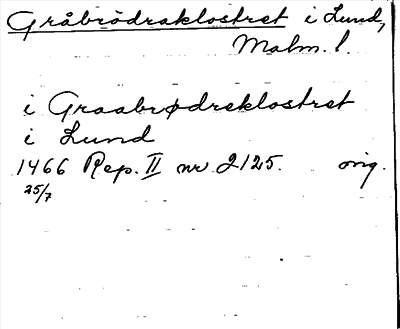 Gråbrödraklostret i Lund,
Malm. l.
i Graabrødreklostret
i Lund
1466 Rep. II nr 2125. orig.
25/7